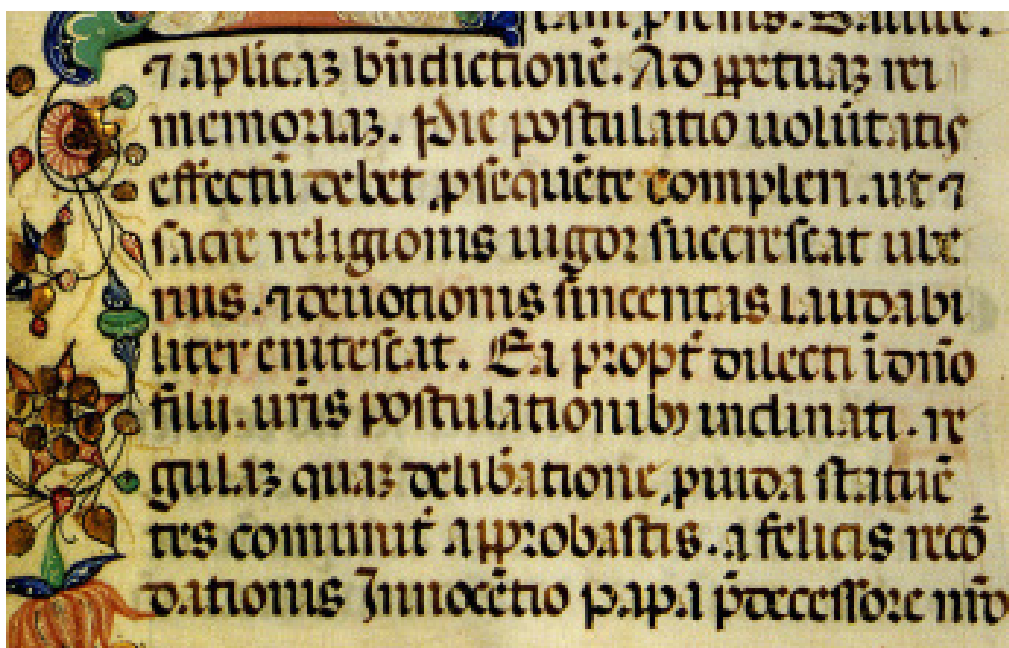 ⁊ aplicaꝫ bn̄dictionē. Ad ꝑpetuaꝫ rei
memoriaꝫ. Pie postulatio uolūtatis
effectū debet ꝓseq̄uēte compleri. ut ⁊
sacre religionis uigor succrescat ulte
rius. ⁊ deuotionis sinceritas laudabi
liter enitescat. Ea propt̄ dilecti ī dn̄o
filij. ur̄is postulationibꝫ inclinati. re
gulaꝫ quaꝫ delib̄atione ꝓuida statuē
tes comunit̄ approbastis. a felicis recō
dationis Innocētio papa p̄decessore nr̄o